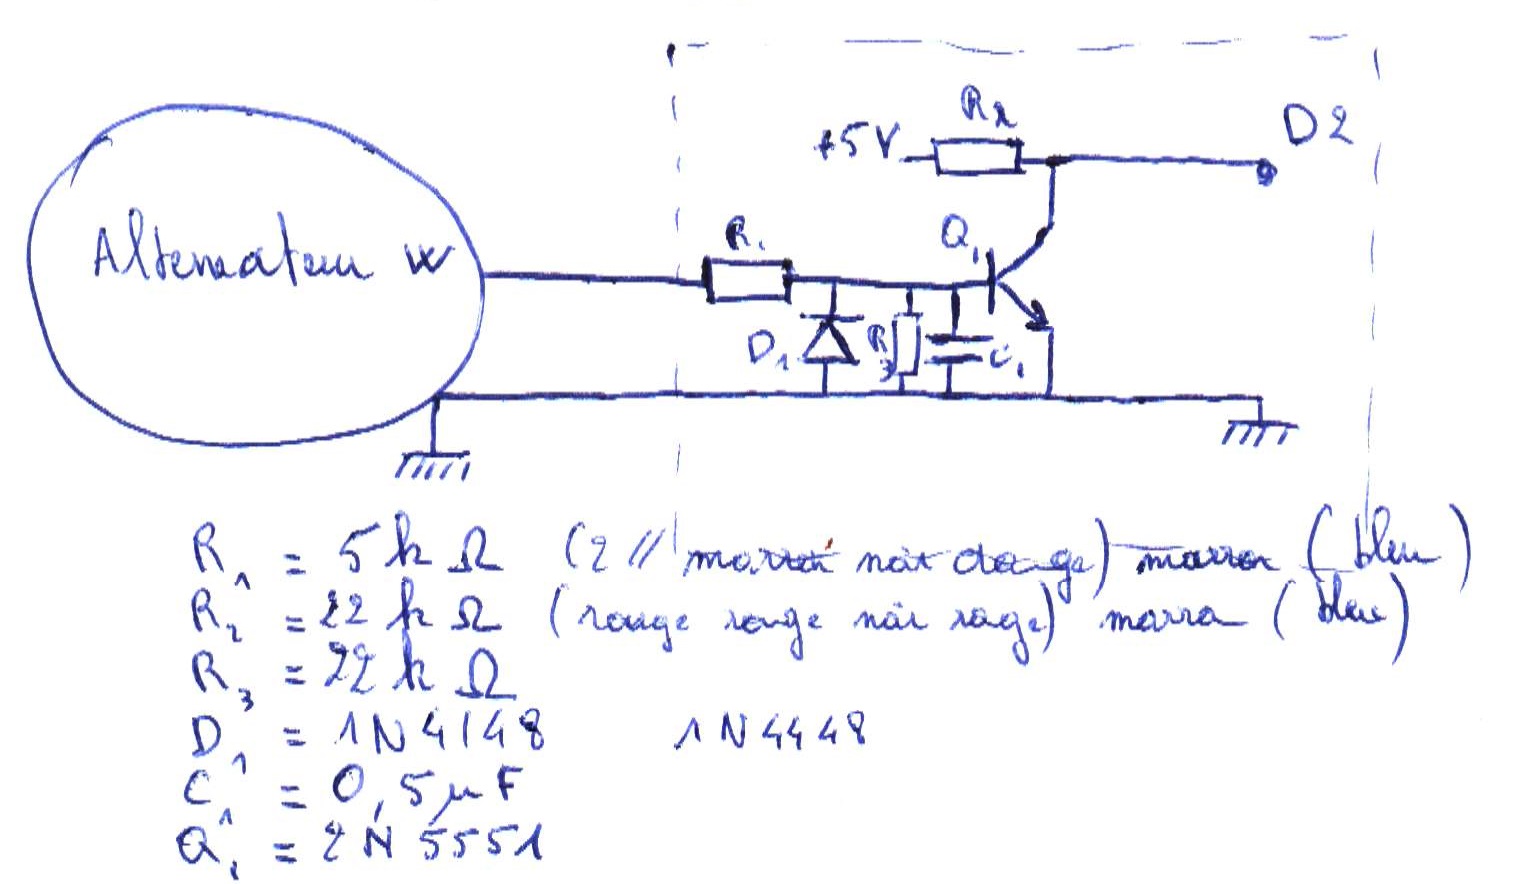 R2
D2
+5V
Q1
R1
Alternateur W
D1
R3
C1
R1 = 5 k Ω (2 // marron noir orange) marron (bleu)
R2 = 22 k Ω (rouge rouge noir rouge) marron (bleu)
R3 = 22 k Ω
D1 = 1N4148 1N4448
C1 = 0,5 µF
Q1 = 2N5551